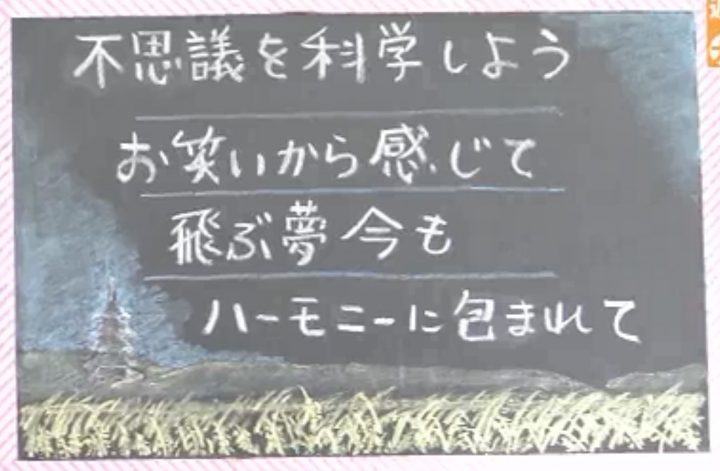 不思議を科学しよう
お笑いから感じて
飛ぶ夢今も
ハーモニーに包まれて